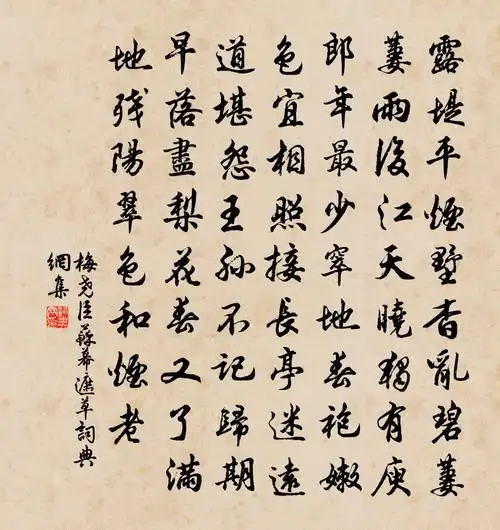 露堤平煙墅杳亂碧萋
萋雨後江天曉獨有庾
郎年最少窣地春袍嫩
色宜相照接長亭迷遠
道堪怨王孫不記歸期
早落盡梨花春又了滿
地殘陽翠色和煙老
梅堯臣蘇幕遮草詞典
網集